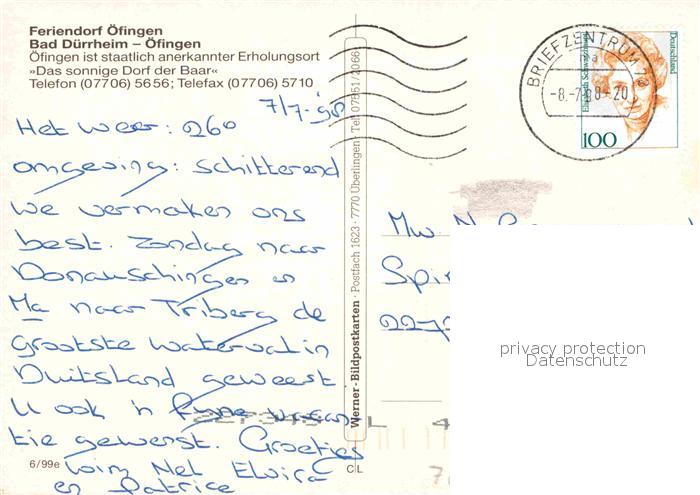 Feriendorf Öfingen
Bad Dürrheim – Öfingen
Öfingen ist staatlich anerkannter Erholungsort
»Das sonnige Dorf der Baar«
Telefon (07706) 5656; Telefax (07706) 5710
7/7-'98
Het weer: 26°
omgeving: schitterend
we vermaken ons
best. Zondag naar
Donauschingen en
Ma naar Triberg de
grootste waterval in
Duitsland geweest
U ook 'n fijne vakan
tie gewenst. Groetjes
Wim Nel Elvira
en Patrice
6/99e
Werner-Bildpostkarten · Postfach 1623 · 7770 Überlingen · Tel. 07551/2066
CL
BRIEFZENTRUM 78
a
-8.-7.98-20
Deutschland
100
Mw. N.
Spi
privacy protection
Datenschutz